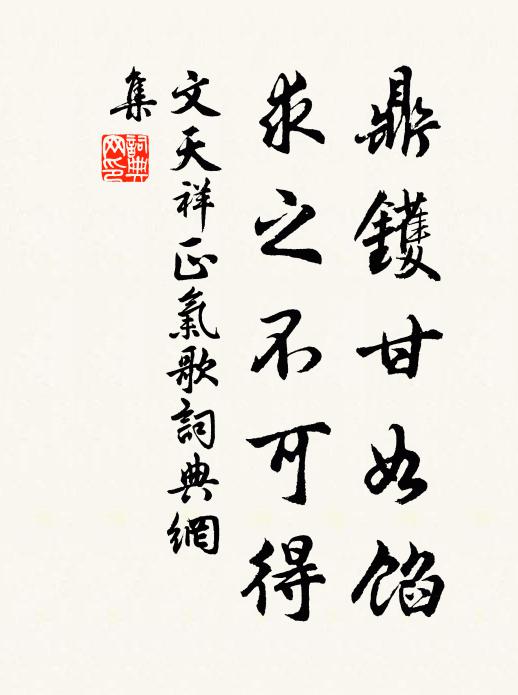 鼎鑊甘如餡
求之不可得
文天祥正氣歌詞典網
集
詞典
网印